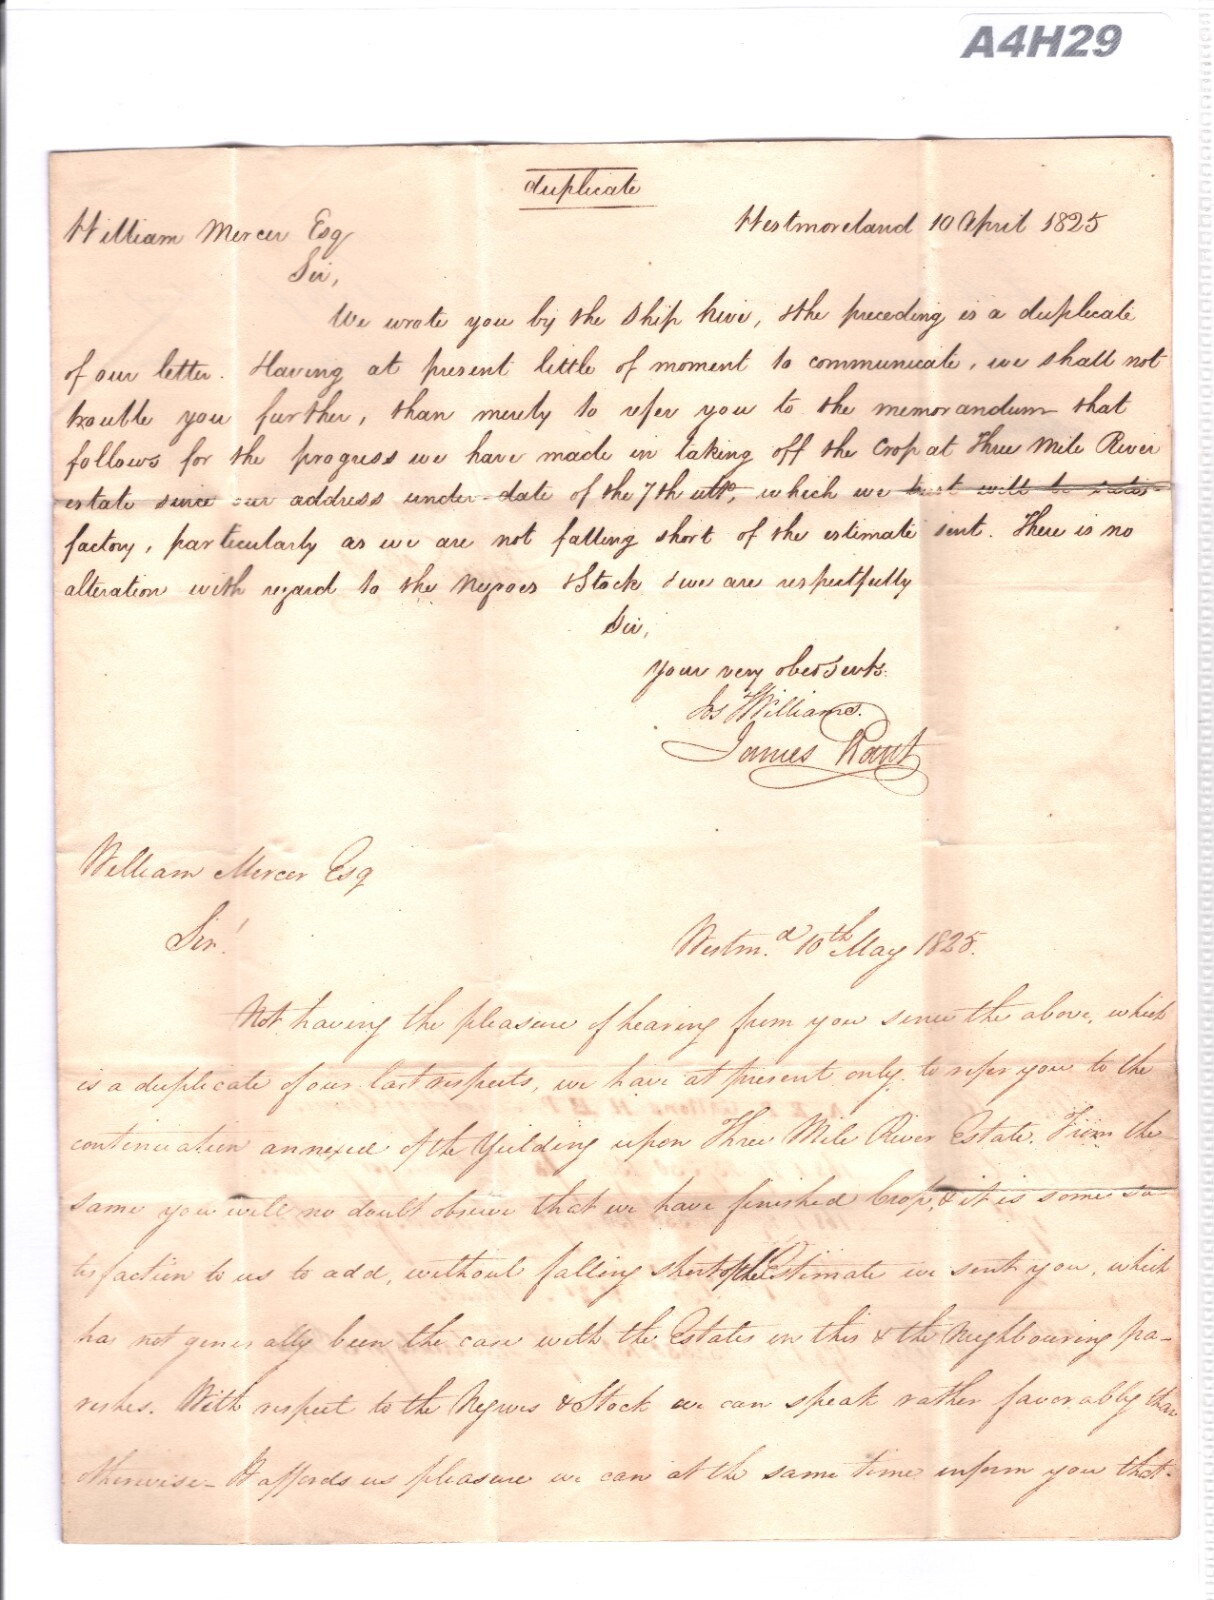 A4H29
duplicate
William Mercer Esq
Westmoreland 10 April 1825
Sir,
We wrote you by the Ship Nive, & the preceding is a duplicate
of our letter. Having at present little of moment to communicate, we shall not
trouble you further, than merely to refer you to the memorandum that
follows for the progress we have made in taking off the Crop at Three Mile River
estate since our address under date of the 7th ulto, which we trust will be satis-
factory, particularly as we are not falling short of the estimate sent. There is no
alteration with regard to the Negroes & Stock & we are respectfully
Sir,
your very obed Servts.
Jos Williams.
James
William Mercer Esq
Sir!
Westm.d 10th May 1825.
Not having the pleasure of hearing from you since the above, which
is a duplicate of our last respects, we have at present only to refer you to the
continuation annexed of the Yielding upon Three Mile River Estate. From the
same you will no doubt observe that we have finished Crop, & it is some sa-
tisfaction to us to add, without falling short of the Estimate we sent you, which
has not generally been the case with the Estates in this & the Neighbouring pa-
rishes. With respect to the Negroes & Stock we can speak rather favorably than
otherwise - It affords us pleasure we can at the same time inform you that